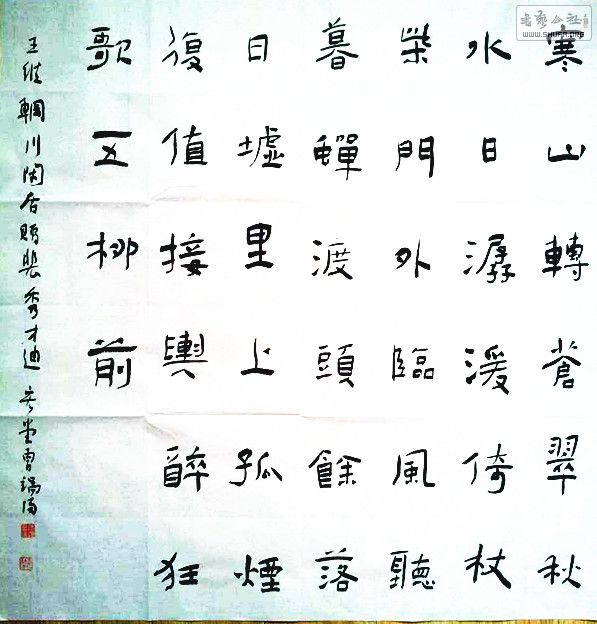 寒山轉蒼翠秋
水日潺湲倚杖
柴門外臨風聽
暮蟬渡頭餘落
日墟里上孤煙
復值接輿醉狂
歌五柳前
王維輞川閑居贈裴秀才迪 堂曹瑞
WWW.SHUFA.ORG